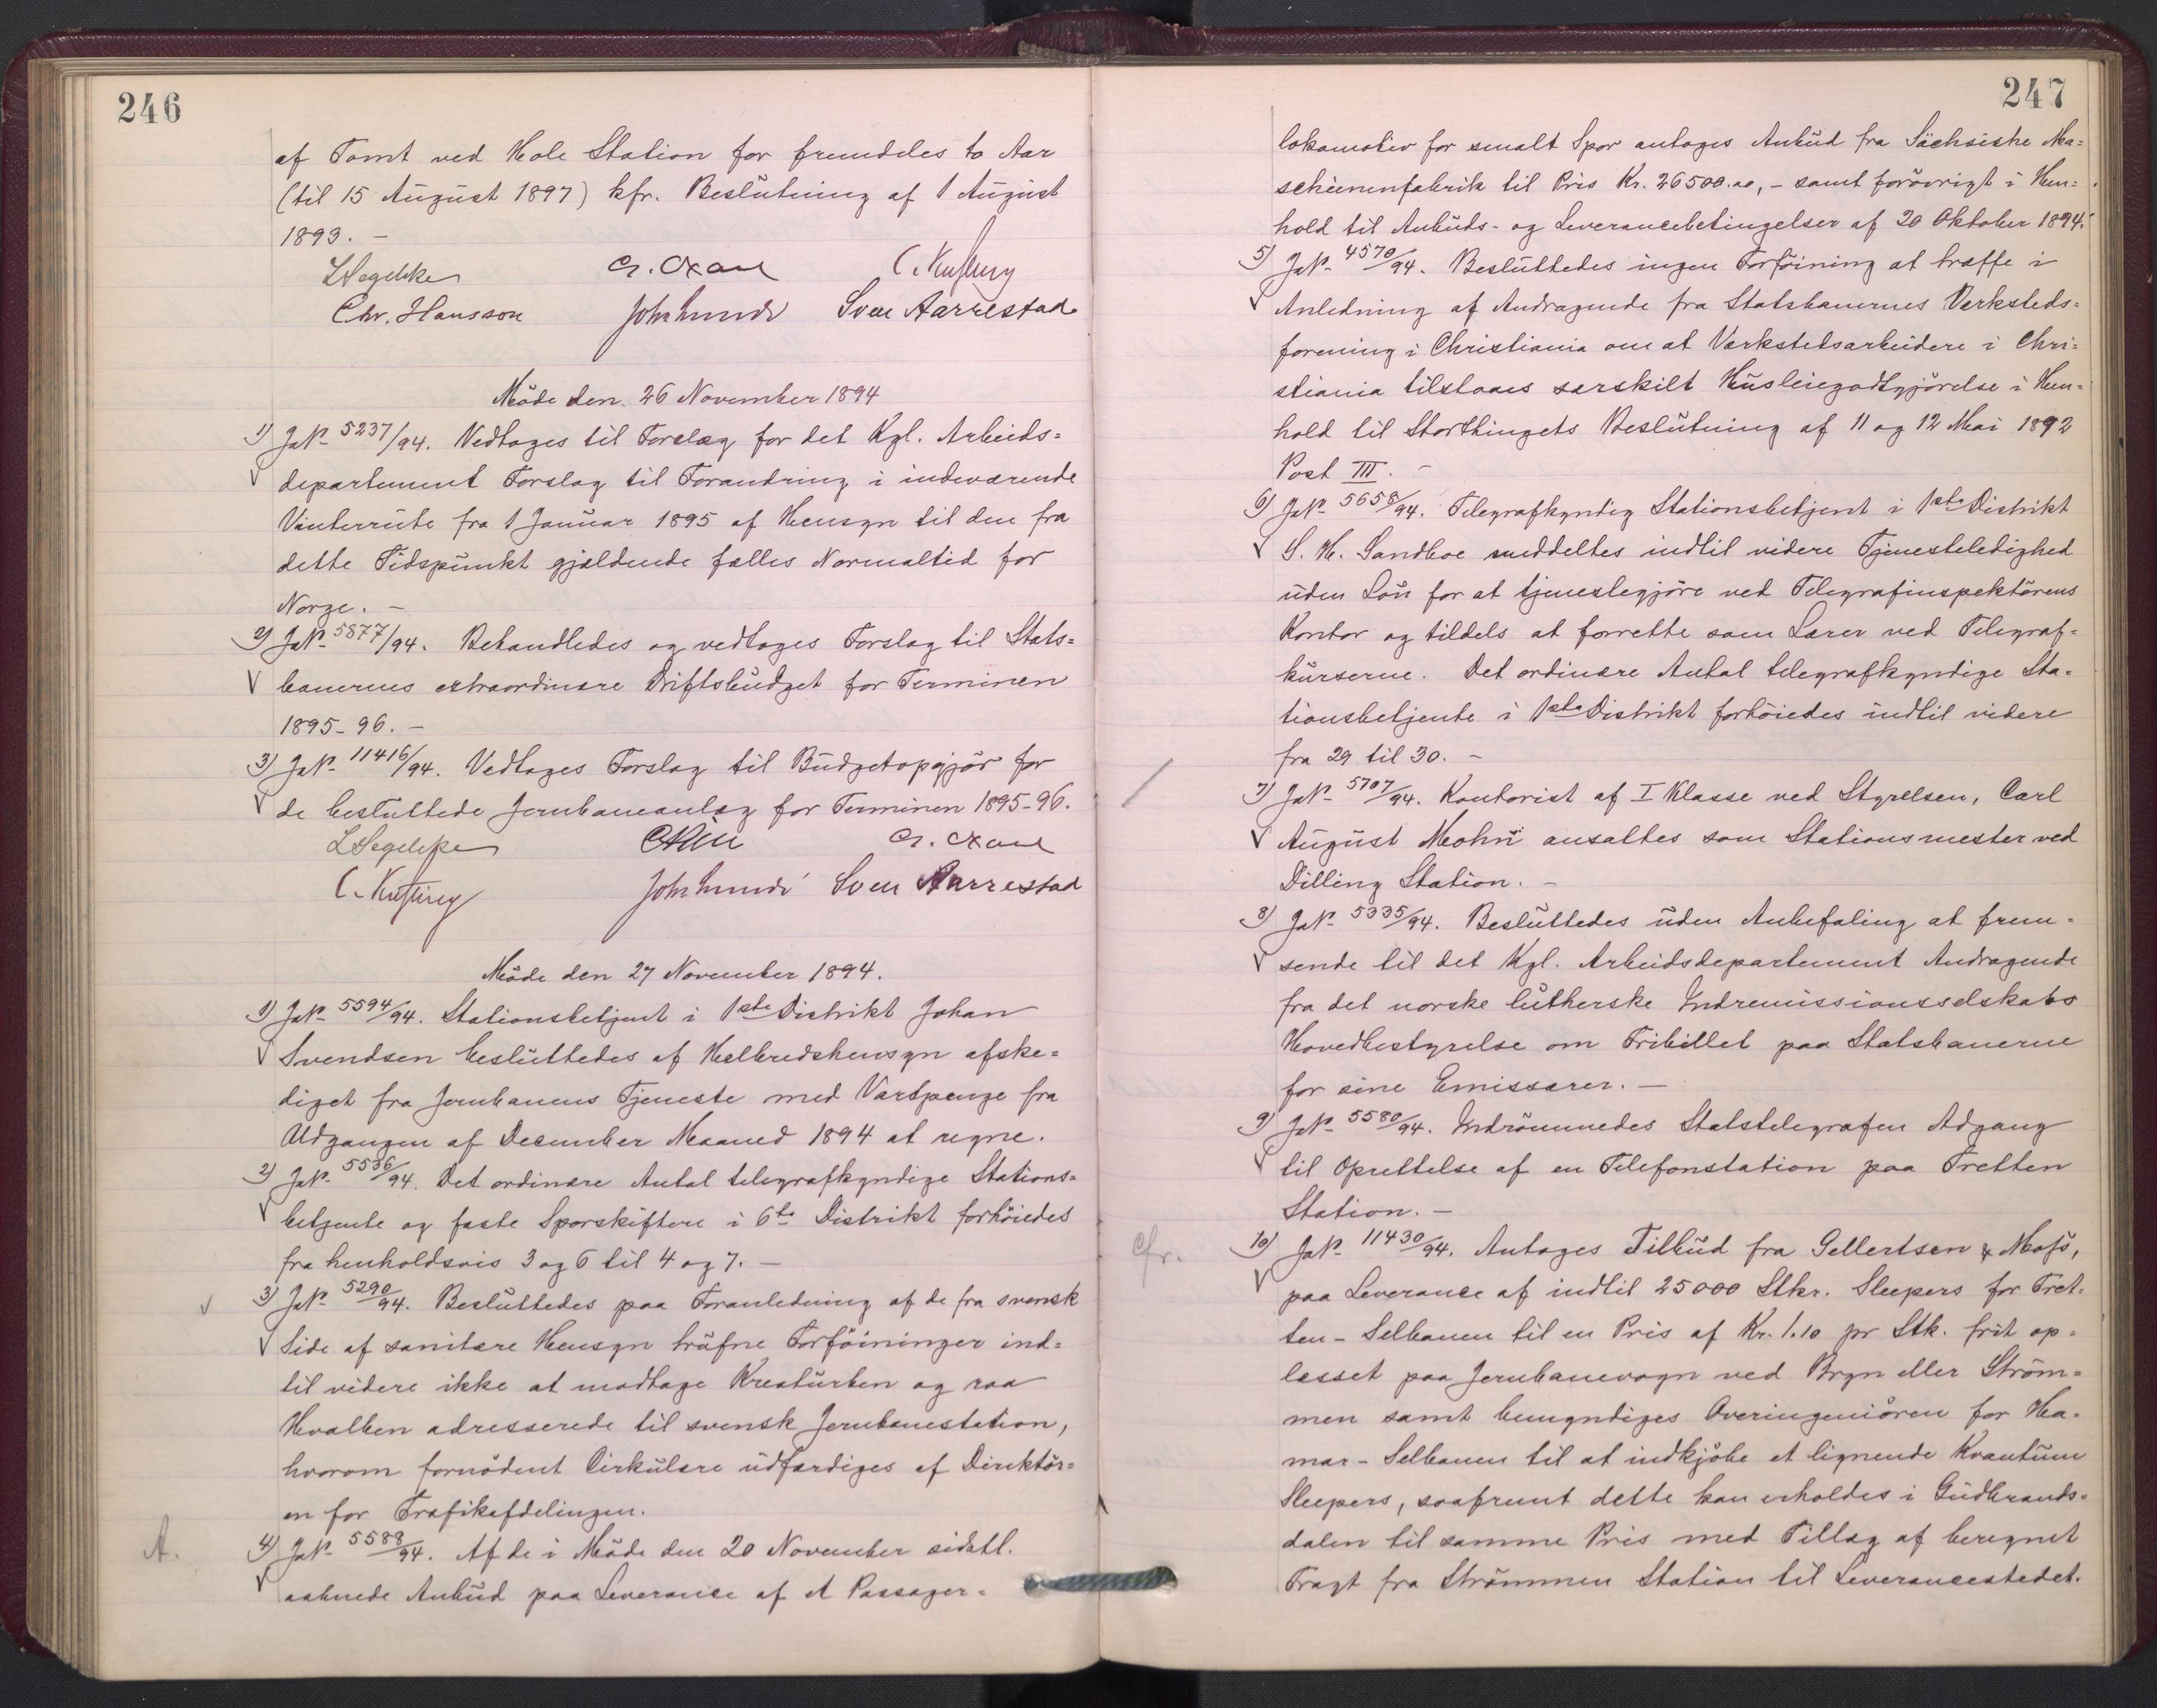 246
af Tomt ved Hole Station for fremdeles to Aar
(til 15 August 1897) kfr. Beslutning af 1 August
1893. –
LSegelcke
Chr. Hansson
Joh. Lunde
Sven Aarrestad
Møde den 26 November 1894
1) JaNo 5237/94. Vedtoges til Forelæg for det Kgl. Arbeids=
departement Forslag til Forandring i indeværende
Vinterrute fra 1 Januar 1895 af Hensyn til den fra
dette Tidspunkt gjældende fælles Normaltid for
Norge. –
2) JaNo 5877/94. Behandledes og vedtoges Forslag til Stats=
banernes extraordinære Driftsbudget for Terminen
1895-96. –
3) JaNo 11416/94. Vedtoges Forslag til Budgetopgjør for
de besluttede Jernbaneanlæg for Terminen 1895-96.
LSegelcke
Joh. Lunde Sven Aarrestad
Møde den 27 November 1894.
1) JaNo 5594/94. Stationsbetjent i 1ste Distrikt Johan
Svendsen besluttedes af Helbredshensyn afske=
diget fra Jernbanens Tjeneste med Vartpenge fra
Udgangen af December Maaned 1894 at regne.
2) JaNo 5536/94. Det ordinære Antal telegrafkyndige Stations=
betjente og faste Sporskiftere i 6te Distrikt forhøiedes
fra henholdsvis 3 og 6 til 4 og 7. –
3) JaNo 5290/94. Besluttedes paa Foranledning af de fra svensk
Side af sanitære Hensyn trufne Forføininger ind=
til videre ikke at modtage Kreaturben og raa
Hvalben adresserede til svensk Jernbanestation,
hvorom fornødent Cirkulære udfærdiges af Direktør=
en for Trafikafdelingen.
A. 4) JaNo 5588/94. Af de i Møde den 20 November sidstl.
aabnede Anbud paa Leverance af et Passager=
247
lokomotiv for smalt Spor antoges Anbud fra Sächsiske Ma=
schienenfabrik til Pris Kr. 26500.00, – samt forøvrigt i Hen=
hold til Anbuds- og Leverancebetingelser af 20 Oktober 1894.
5) JaNo 4570/94. Besluttedes ingen Forføining at træffe i
Anledning af Andragende fra Statsbanernes Verksteds=
forening i Christiania om at Værkstedsarbeidere i Chri=
stiania tilstaaes særskilt Husleiegodtgjørelse i Hen=
hold til Storthingets Beslutning af 11 og 12 Mai 1892
Post III. –
6) JaNo 5658/94. Telegrafkyndig Stationsbetjent i 1ste Distrikt
S. H. Sandboe meddeltes indtil videre Tjenesteledighed
uden Løn for at tjenestegjøre ved Telegrafinspektørens
Kontor og tildels at forrette som Lærer ved Telegraf=
kurserne. Det ordinære Antal telegrafkyndige Sta=
tionsbetjente i 1ste Distrikt forhøiedes indtil videre
fra 29 til 30. –
7) JaNo 5707/94. Kontorist af I Klasse ved Styrelsen, Carl
August Mohn ansattes som Stationsmester ved
Dilling Station. –
8) JaNo 5335/94. Besluttedes uden Anbefaling at frem=
sende til det Kgl. Arbeidsdepartement Andragende
fra det norske lutherske Indremissionsselskabs
Hovedbestyrelse om Fribillet paa Statsbanerne
for sine Emissærer. –
9) JaNo 5580/94. Indrømmedes Statstelegrafen Adgang
til Oprettelse af en Telefonstation paa Tretten
Station. –
Cfr. 10) JaNo 11430/94. Antoges Tilbud fra Gellertsen & Moss,
paa Leverance af indtil 25000 Stkr. Sleepers for Tret=
ten-Selbanen til en Pris af Kr. 1.10 pr Stk. frit op=
læsset paa Jernbanevogn ved Bryn eller Strøm=
men samt bemyndiges Overingeniøren for Ha=
mar-Selbanen til at indkjøbe et lignende Kvantum
Sleepers, saafremt dette kan erholdes i Gudbrands=
dalen til samme Pris med Tillæg af beregnet
Fragt fra Strømmen Station til Leverancestedet.